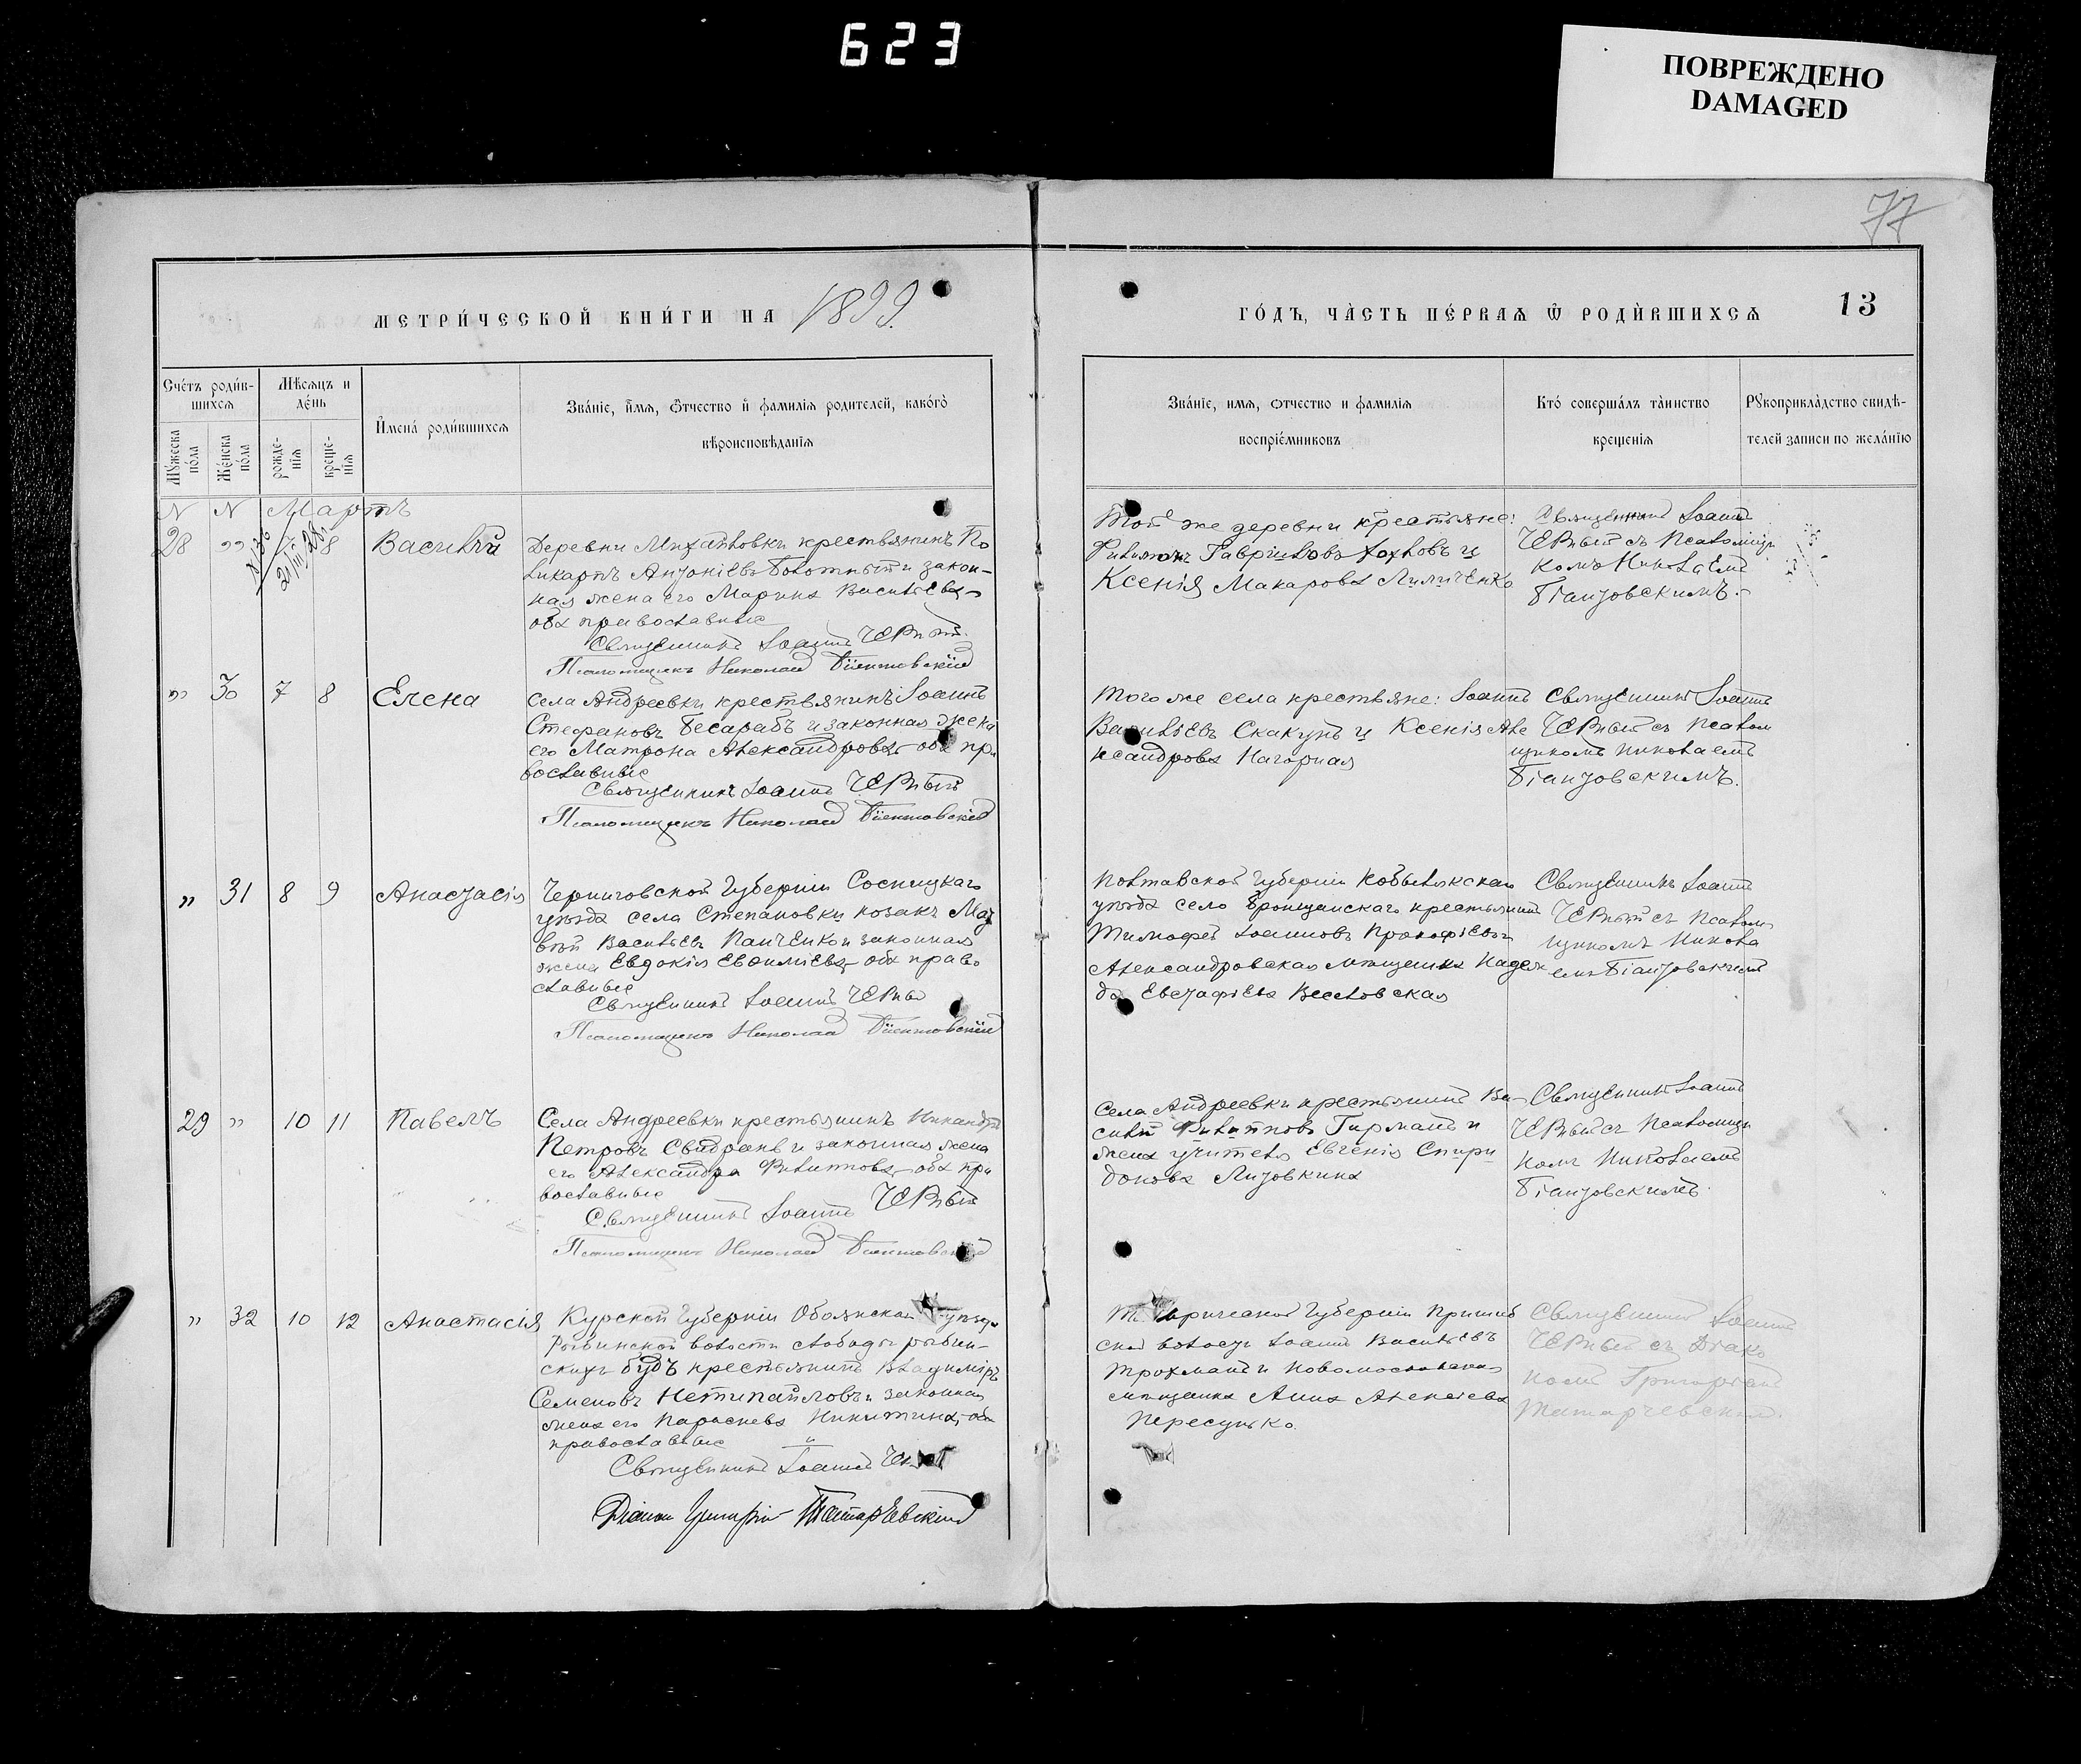 623
ПОВРЕЖДЕНО
DAMAGED
77
МЕТРИ́ЧЕСКОЙ КНИ́ГИ НА 1899.
ГО́ДЪ, ЧА̀СТЬ ПЕ́РВАѦ Ѿ РОДИ́ВШИХСѦ
13
Сче́тъ роди́в-
шихсѧ
Мѣ́сѧцъ и
де́нь
И҆мена̀ роди́вшихсѧ
Зва́нїе, и҆́мѧ, ѻ҆́тчество и҆ фамилїѧ родителей, како́гѡ
вѣроисповѣ́данїѧ
Мꙋ́жеска
по́ла
Же́нска
по́ла
рожде-
нїѧ
креще-
нїѧ
Зва́нїе, имѧ, отчество и фамилїѧ
воспрїе́мниковъ
Кто́ соверша́лъ та́инство
крещенїѧ
Рꙋкоприкла́дство свидѣ-
телей записи по жела́нїю
N N Мартъ
28 " 7 8 Василій
Деревни Михайловки крестьянинъ По
ликарпъ Антоніевъ Болотный и закон-
ная жена его Марина Васильева,
оба православные
Священникъ Іоаннъ Черный.
Псаломщикъ Николай Піентовскій
Той же деревни крестьяне:
Филимонъ Гавріиловъ Хохловъ и
Ксенія Макарова Лиличенко
Священникъ Іоаннъ
Черный съ Псаломщи
комъ Николаемъ
Піентовскимъ.
" 30 7 8 Елена
Села Андреевки крестьянинъ Іоаннъ
Стефановъ Бесарабъ и законная жена
его Матрона Александрова, оба пра
вославные
Священникъ Іоаннъ Черный
Псаломщикъ Николай Піентовскій
Того же села крестьяне: Іоаннъ
Васильевъ Скакунъ и Ксенія Але
ксандрова Нагорная
Священникъ Іоаннъ
Черный съ Псалом
щикомъ Николаемъ
Піентовскимъ.
" 31 8 9 Анастасія
Черниговской Губерніи Сосницкаго
уѣзда села Степановки козакъ Мат
вѣй Васильевъ Панченко и законная
жена Евдокія Евфиміева, оба право
славные
Священникъ Іоаннъ Черный
Псаломщикъ Николай Піентовскій
Полтавской Губерніи Кобылякскаго
уѣзда село крестьянинъ
Тимофей Іоанновъ Прокофьевъ и
Александровская мѣщанка Надеж
да Евстафіева Веселовская
Священникъ Іоаннъ
Черный съ Псалом
щикомъ Никола
емъ Піентовскимъ
29 " 10 11 Павелъ
Села Андреевки крестьянинъ Никандръ
Петровъ и законная жена
его Александра Филиппова, оба пра
вославные
Священникъ Іоаннъ Черный
Псаломщикъ Николай Піентовскій
Села Андреевки крестьянинъ Ва
силій Филипповъ Гирманъ и
жена учителя Евгенія Спири
донова Лизовкина
Священникъ Іоаннъ
Черный съ Псаломщи
комъ Николаемъ
Піентовскимъ.
" 32 10 12 Анастасія
Курской Губерніи Обоянскаго уѣзда
Рыбинской волости слободы Рыбин-
скихъ Будъ крестьянинъ Владиміръ
Семеновъ Нетипайловъ и законная
жена его Параскева Никитина, оба
православные
Священникъ Іоаннъ
Діаконъ Григорій Татарчевскій
Таврической Губерніи Пришиб
ской волости Іоаннъ Васильевъ
Трохманъ и Новомосковская
мѣщанка Анна Алексѣева
Пересунько.
Священникъ Іоаннъ
Черный съ Діако
номъ Григоріемъ
Татарчевскимъ.